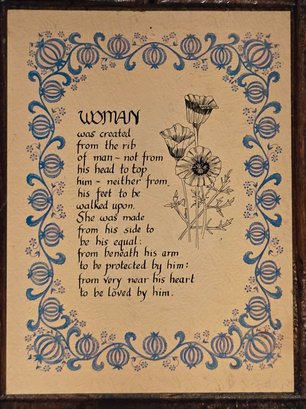 WOMAN
was created
from the rib
of man ~ not from
his head to top
him ~ neither from
his feet to be
walked upon.
She was made
from his side to
be his equal:
from beneath his arm
to be protected by him:
from very near his heart
to be loved by him.